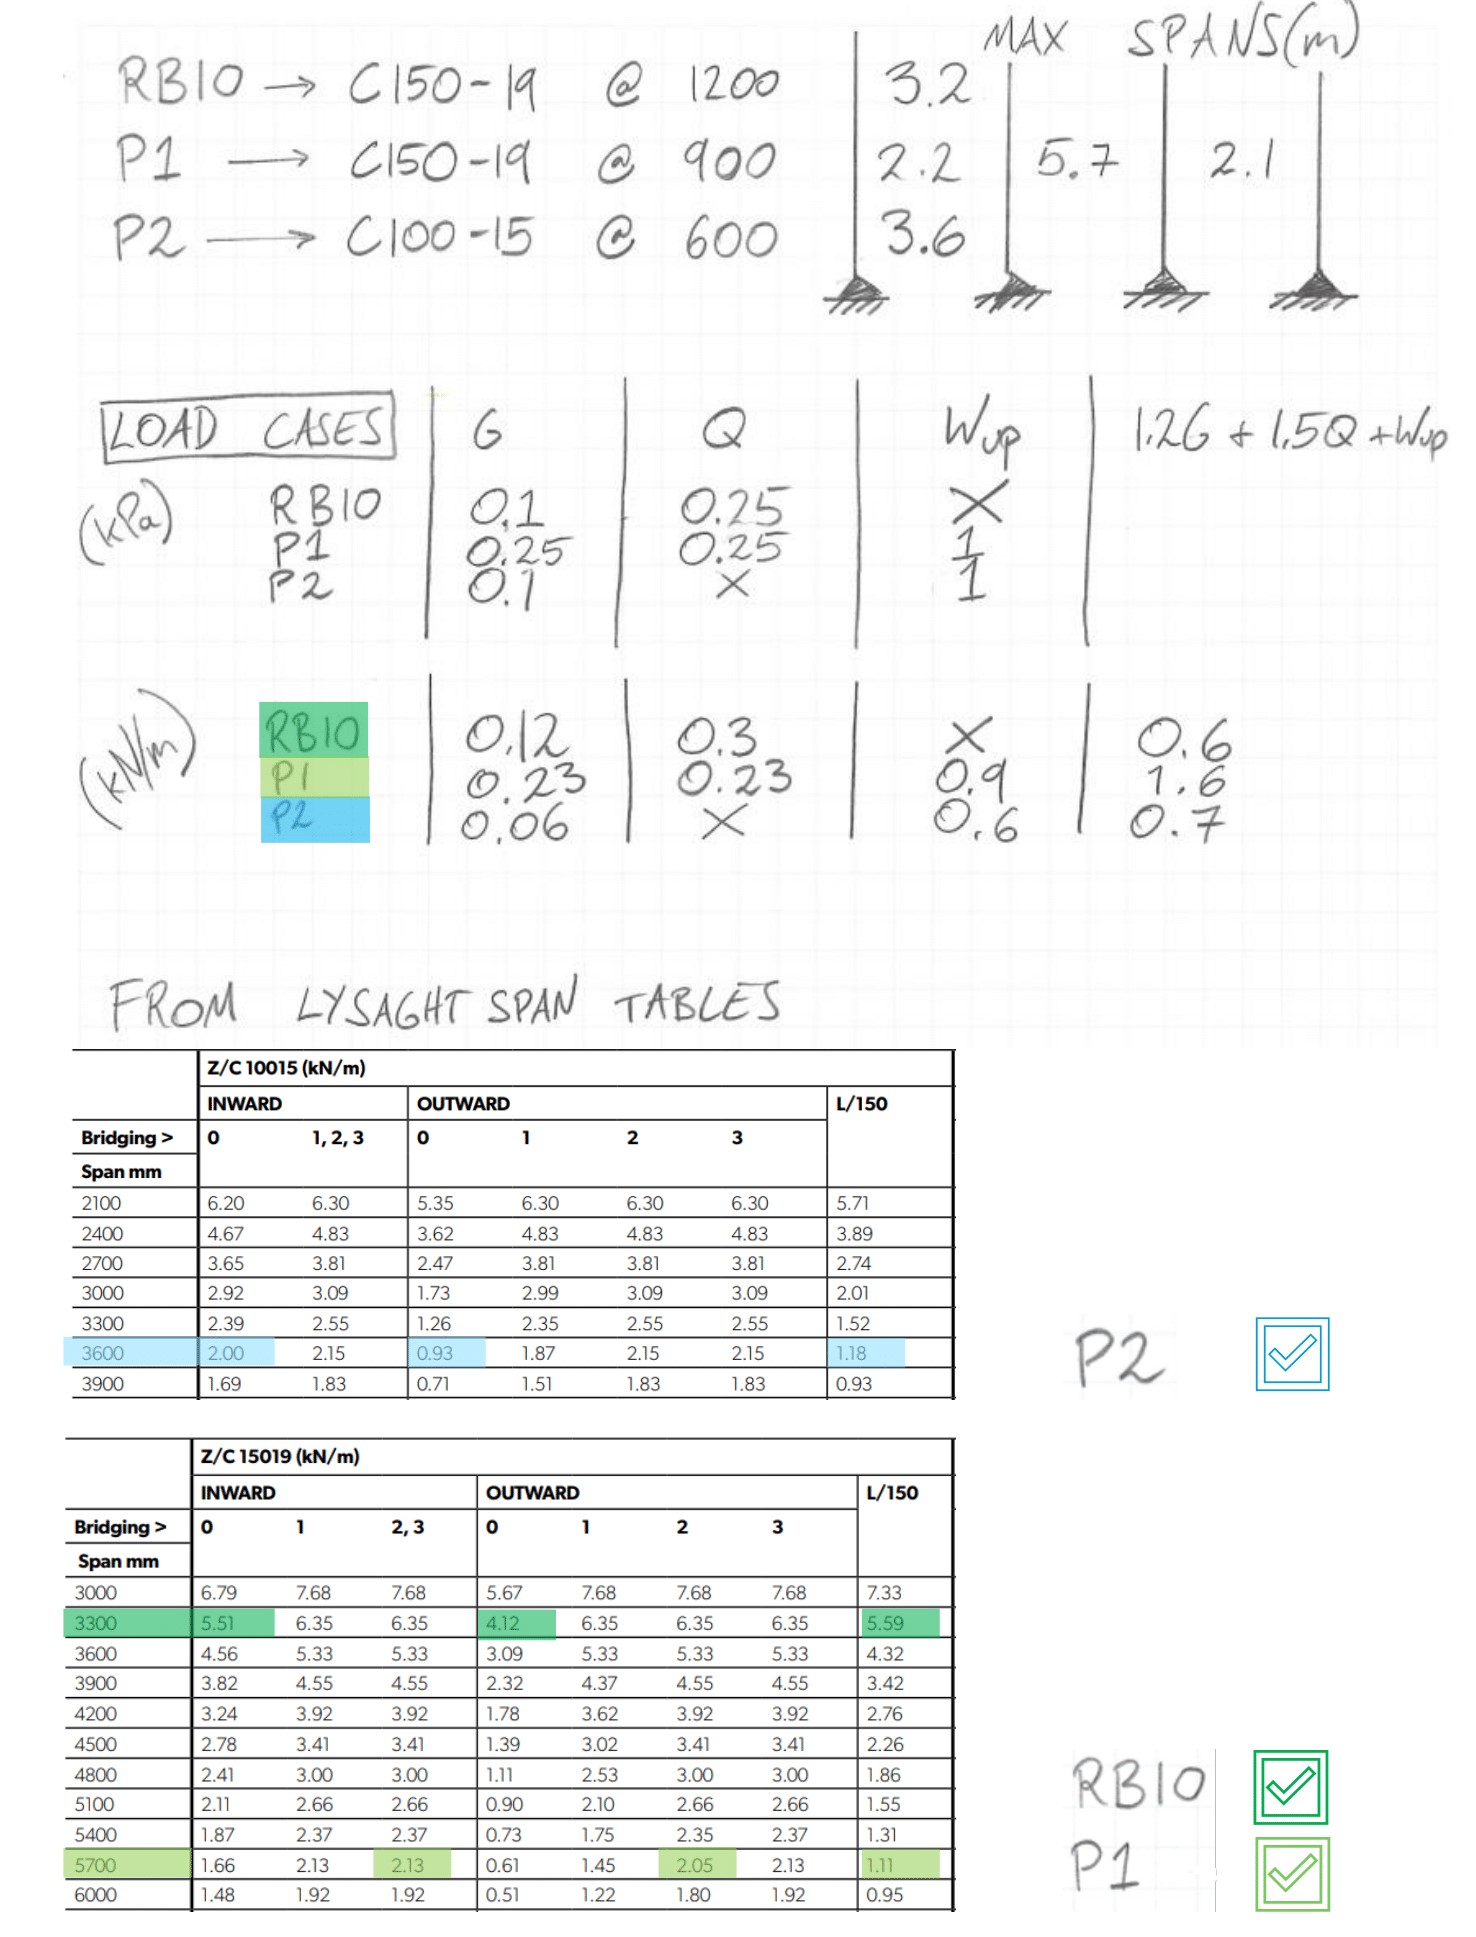 MAX SPANS(m)
RB10 → C150-19 @ 1200 3.2
P1 → C150-19 @ 900 2.2 5.7 2.1
P2 → C100-15 @ 600 3.6
LOAD CASES G Q Wup 1.2G + 1.5Q + Wup
(kPa) RB10 0.1 0.25 X
P1 0.25 0.25 1
P2 0.1 X 1
(kN/m) RB10 0.12 0.3 X 0.6
P1 0.23 0.23 0.9 1.6
P2 0.06 X 0.6 0.7
FROM LYSAGHT SPAN TABLES
Z/C 10015 (kN/m)
INWARD OUTWARD L/150
Bridging > 0 1, 2, 3 0 1 2 3
Span mm
2100 6.20 6.30 5.35 6.30 6.30 6.30 5.71
2400 4.67 4.83 3.62 4.83 4.83 4.83 3.89
2700 3.65 3.81 2.47 3.81 3.81 3.81 2.74
3000 2.92 3.09 1.73 2.99 3.09 3.09 2.01
3300 2.39 2.55 1.26 2.35 2.55 2.55 1.52
3600 2.00 2.15 0.93 1.87 2.15 2.15 1.18
P2
3900 1.69 1.83 0.71 1.51 1.83 1.83 0.93
Z/C 15019 (kN/m)
INWARD OUTWARD L/150
Bridging > 0 1 2, 3 0 1 2 3
Span mm
3000 6.79 7.68 7.68 5.67 7.68 7.68 7.68 7.33
3300 5.51 6.35 6.35 4.12 6.35 6.35 6.35 5.59
3600 4.56 5.33 5.33 3.09 5.33 5.33 5.33 4.32
3900 3.82 4.55 4.55 2.32 4.37 4.55 4.55 3.42
4200 3.24 3.92 3.92 1.78 3.62 3.92 3.92 2.76
4500 2.78 3.41 3.41 1.39 3.02 3.41 3.41 2.26
4800 2.41 3.00 3.00 1.11 2.53 3.00 3.00 1.86
RB10
5100 2.11 2.66 2.66 0.90 2.10 2.66 2.66 1.55
5400 1.87 2.37 2.37 0.73 1.75 2.35 2.37 1.31
5700 1.66 2.13 2.13 0.61 1.45 2.05 2.13 1.11
P1
6000 1.48 1.92 1.92 0.51 1.22 1.80 1.92 0.95